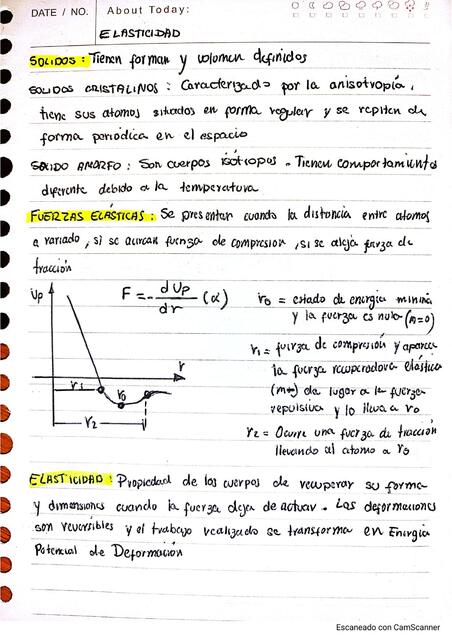 DATE / NO. About Today:
ELASTICIDAD
SOLIDOS: Tienen forman y volumen definidos
SOLIDOS CRISTALINOS: Caracterizado por la anisotropía,
tiene sus atomos situados en forma regular y se repiten de
forma periódica en el espacio
SOLIDO AMORFO: Son cuerpos isótropos. Tienen comportamiento
diferente debido a la temperatura
FUERZAS ELÁSTICAS: Se presentar cuando la distancia entre atomos
a variado, si se acercan fuerza de compresion, si se aleja fuerza de
tracción
Up
F = - dUp/dr (α)
r
r1
r0
r2
r0 = estado de energia minima
y la fuerza es nula (m=0)
r1 = fuerza de compresión y aparece
la fuerza recuperadora elástica
da lugar a la fuerza
repulsiva y lo lleva a r0
r2 = Ocurre una fuerza de tracción
llevando al atomo a r0
ELASTICIDAD: Propiedad de los cuerpos de recuperar su forma
y dimensiones cuando la fuerza deja de actuar. Las deformaciones
son reversibles y el trabajo realizado se transforma en Energia
Potencial de Deformación
Escaneado con CamScanner